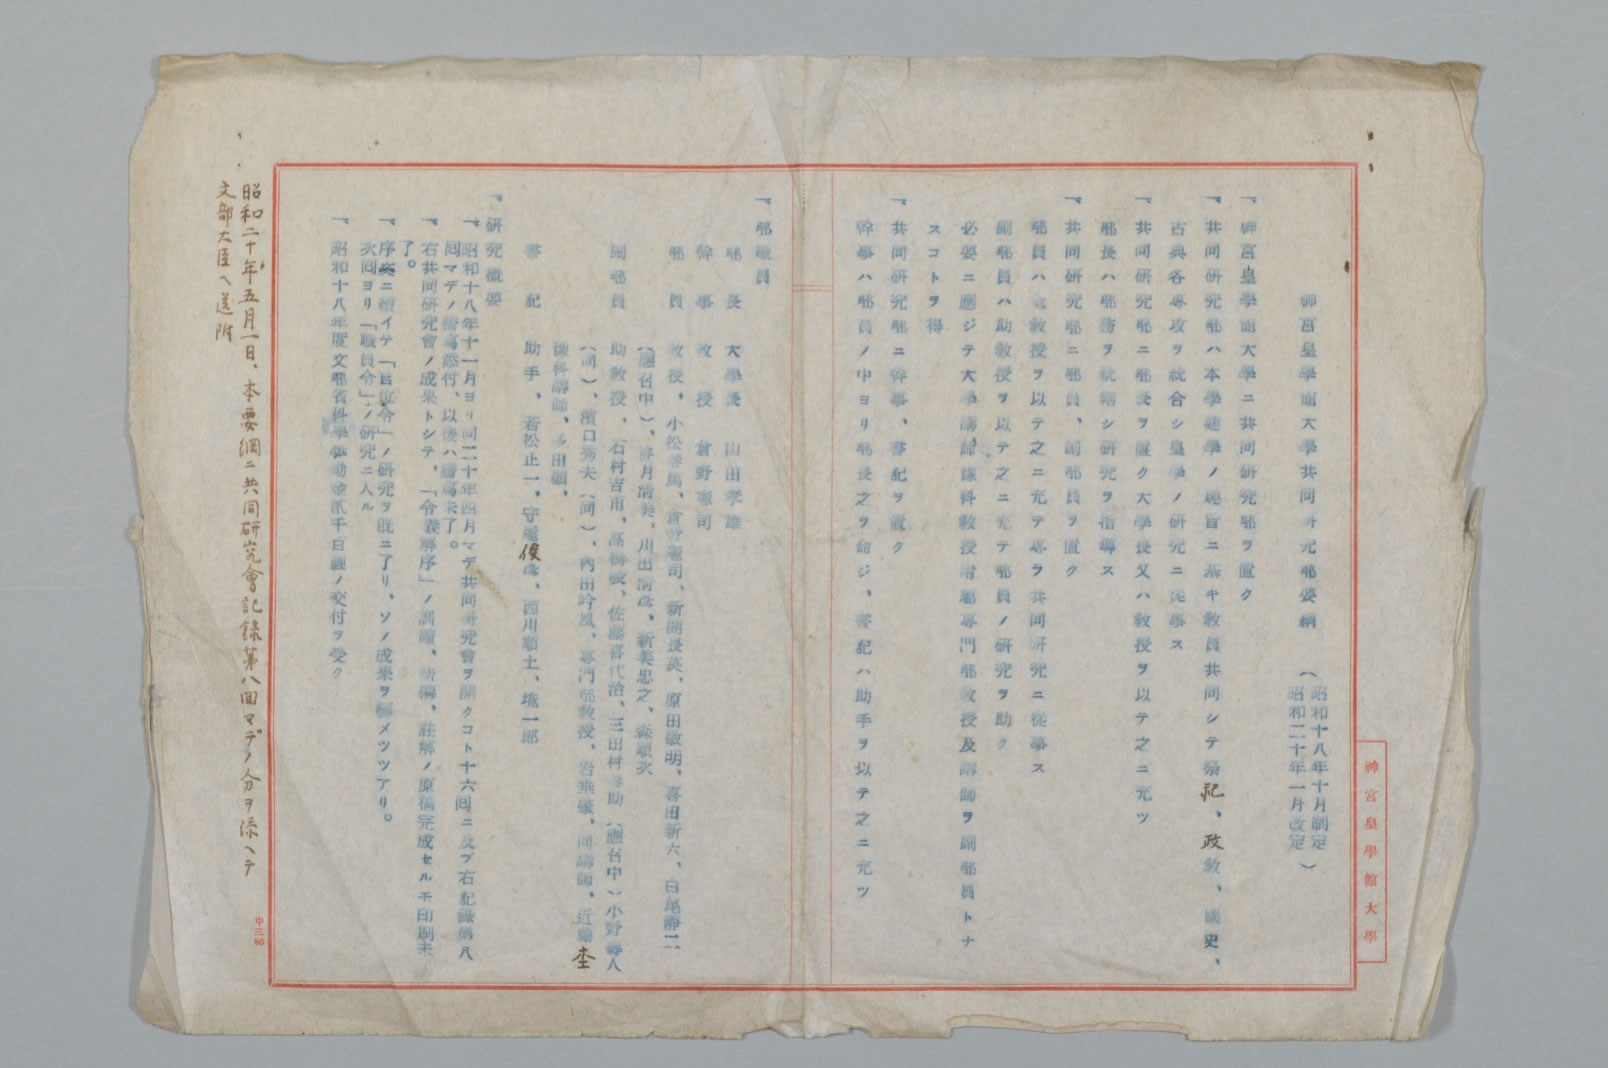 神宮皇學館大學共同研究部要綱
（昭和十八年十月制定
昭和二十年一月改定）
一、神宮皇學館大學ニ共同研究部ヲ置ク
一、共同研究部ハ本學建學ノ趣旨ニ基キ教員共同シテ祭祀、政教、國史、
古典各専攻ヲ統合シ皇學ノ研究ニ從事ス
一、共同研究部ニ部長ヲ置ク大學長又ハ教授ヲ以テ之ニ充ツ
部長ハ部務ヲ統轄シ研究ヲ指導ス
一、共同研究部ニ部員、副部員ヲ置ク
部員ハ教授ヲ以テ之ニ充テ専ラ共同研究ニ從事ス
副部員ハ助教授ヲ以テ之ニ充テ部員ノ研究ヲ助ク
必要ニ應ジテ大學講師豫科教授附屬専門部教授及講師ヲ副部員トナ
スコトヲ得
一、共同研究部ニ幹事、書記ヲ置ク
幹事ハ部員ノ中ヨリ部長之ヲ命ジ、書記ハ助手ヲ以テ之ニ充ツ
一、部職員
部長 大學長 山田孝雄
幹事 教授 倉野憲司
部員 教授、小松 馬、倉野憲司、新開長英、原田敏明、喜田新六、白尾 二
（應召中）、 月清美、川出清彦、新美忠之、森順次
副部員 助教授、石村吉甫、高橋 、佐藤喜代治、三田村 助（應召中）小野 人
（同）、濱口秀夫（同）、内田吟風、専門部教授、岩垂 、同講師、近藤杢
豫科講師、多田 、
書記 助手、若松正一、守屋俊彦、西川順土、 一郎
一、研究概要
一、昭和十八年十一月ヨリ同二十年四月マデ共同研究會ヲ開クコト十六回ニ及ブ右記錄第八
回マデノ謄寫添付、以後ハ謄寫未了。
一、右共同研究會ノ成果トシテ、「令義解序」ノ訓讀、 、註解ノ原稿完成セルモ印刷未
了。
一、序 ニ續イテ「官位令」ノ研究ヲ既ニ了リ、ソノ成果ヲ纏メツツアリ。
次回ヨリ「職員令」ノ研究ニ入ル
一、昭和十八年度文部省科學 金貳千 圓ノ交付ヲ受ク
昭和二十年五月一日、本要綱ニ共同研究會記錄第八回マデノ分ヲ添ヘテ
文部大臣ヘ送附
神宮皇學館大學
中三86